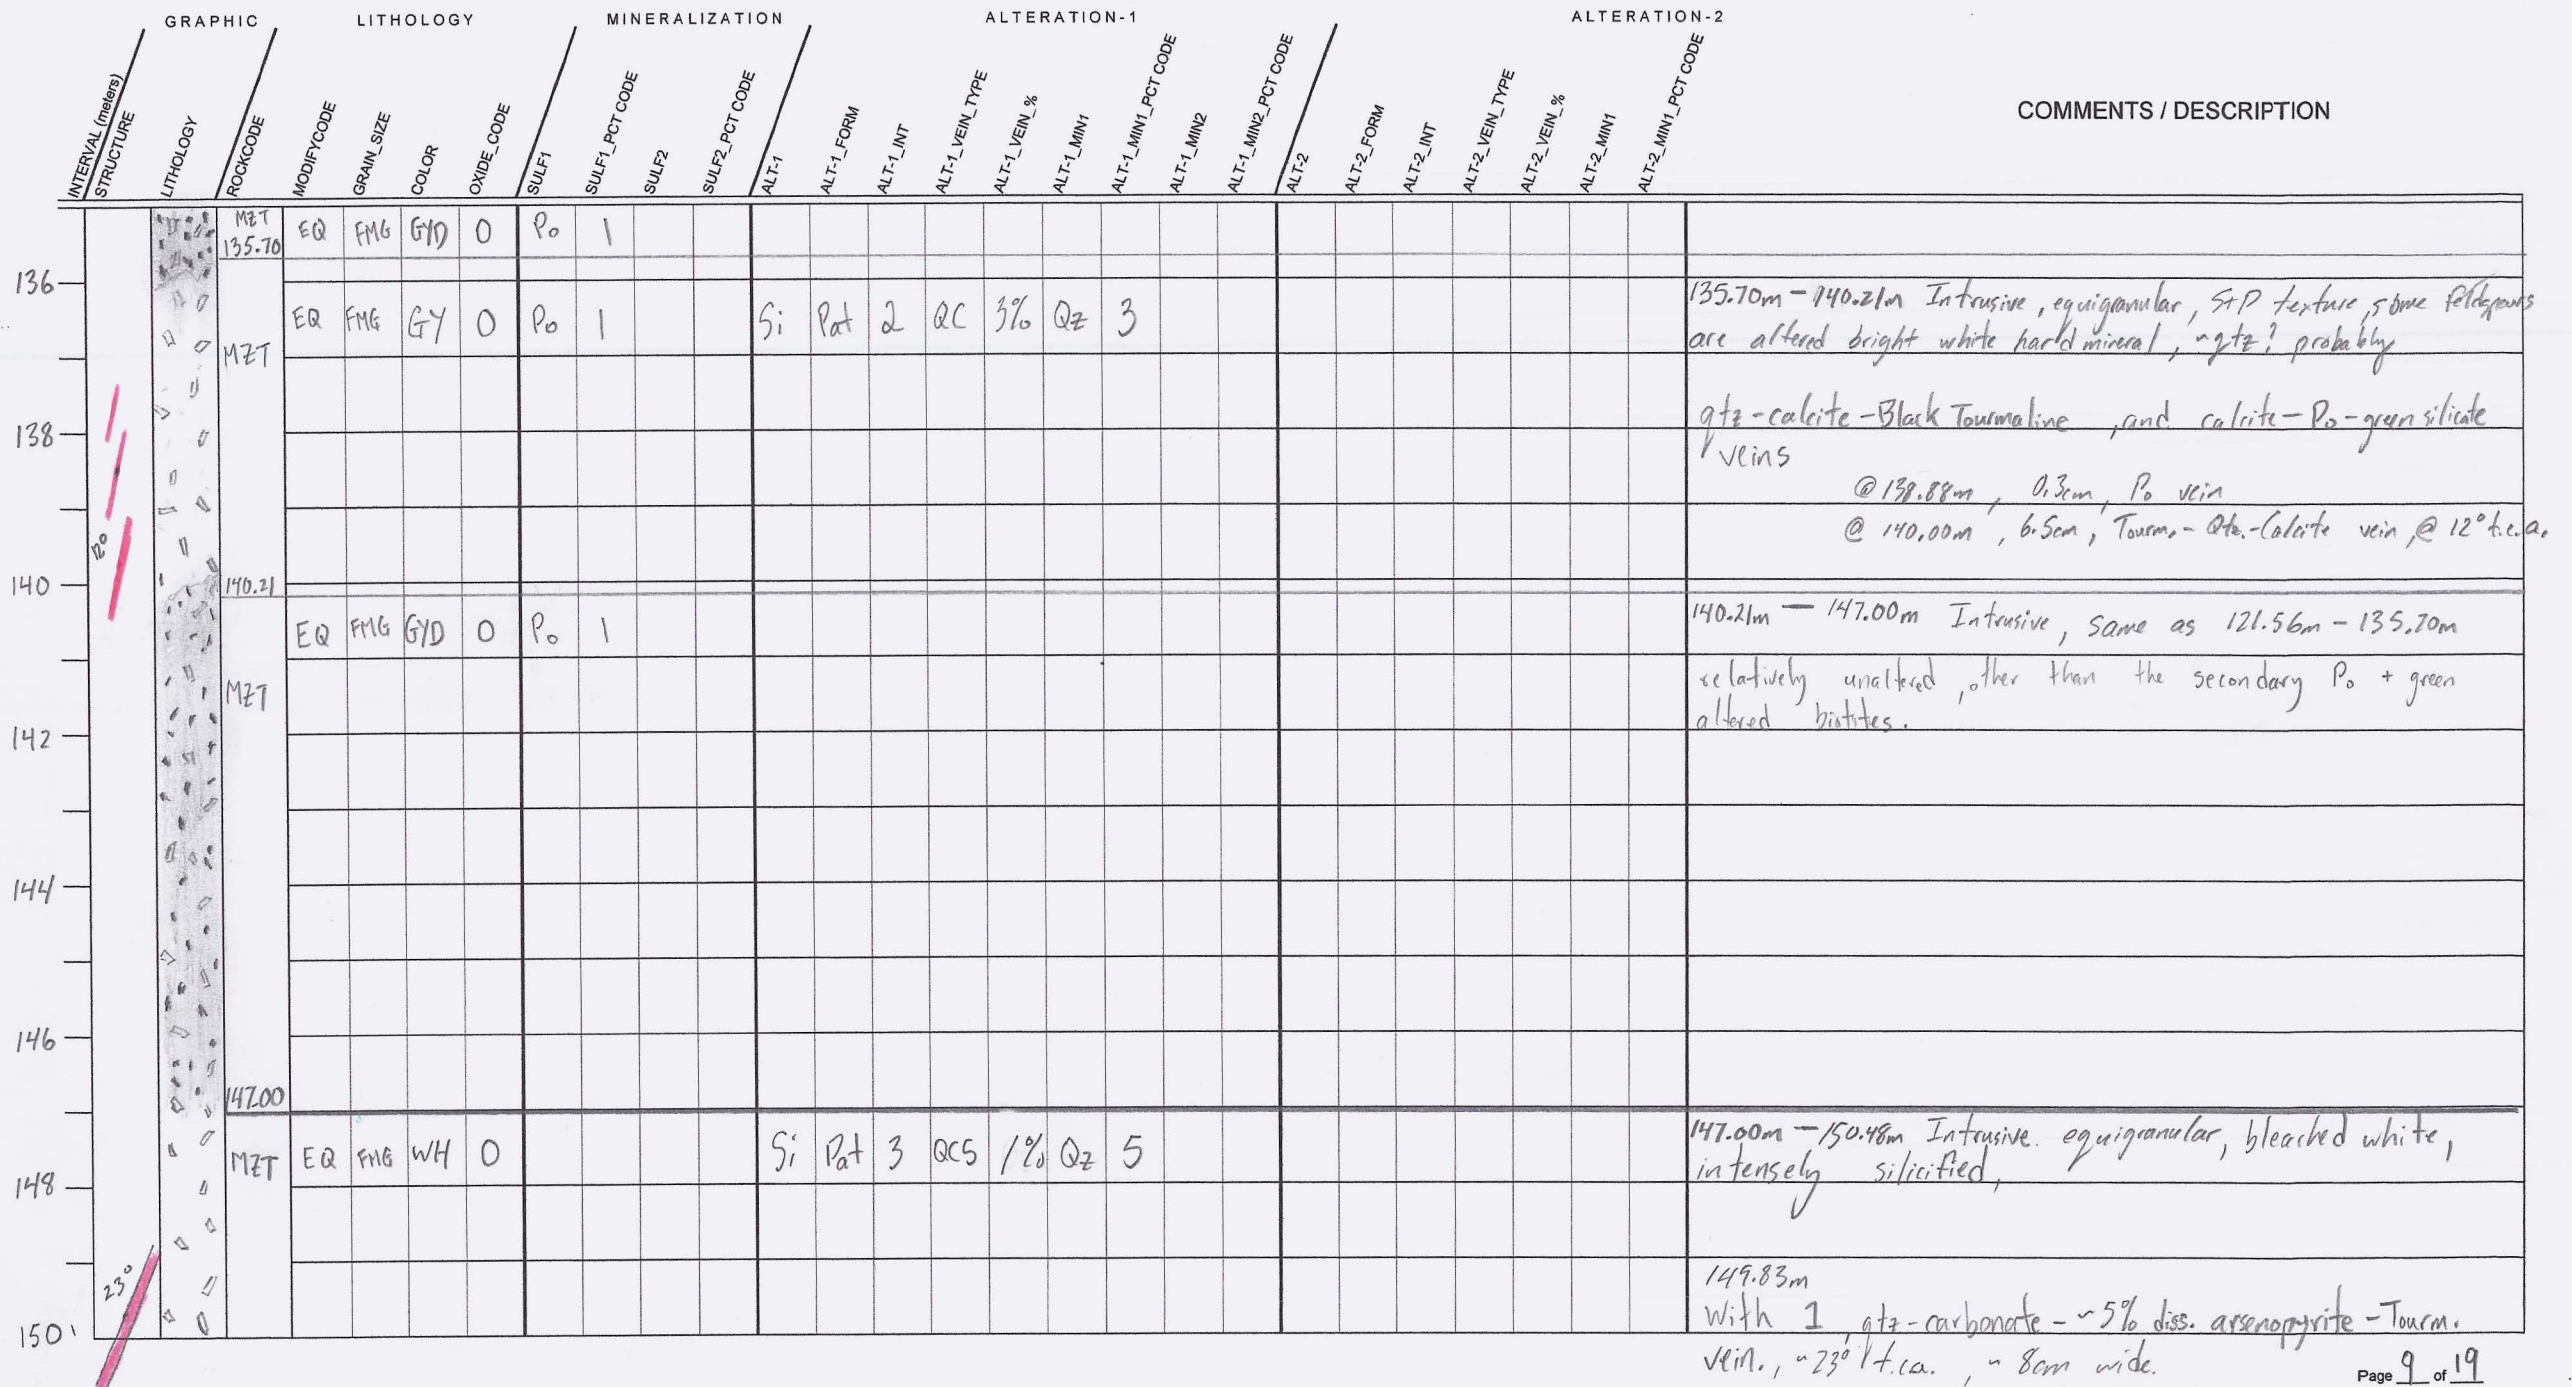 GRAPHIC LITHOLOGY MINERALIZATION ALTERATION-1 ALTERATION-2
INTERVAL (meters)
STRUCTURE
LITHOLOGY
ROCKCODE
MODIFYCODE
GRAIN_SIZE
COLOR
OXIDE_CODE
SULF1
SULF1_PCT CODE
SULF2
SULF2_PCT CODE
ALT-1
ALT-1_FORM
ALT-1_INT
ALT-1_VEIN_TYPE
ALT-1_VEIN_%
ALT-1_MIN1
ALT-1_MIN1_PCT CODE
ALT-1_MIN2
ALT-1_MIN2_PCT CODE
ALT-2
ALT-2_FORM
ALT-2_INT
ALT-2_VEIN_TYPE
ALT-2_VEIN_%
ALT-2_MIN1
ALT-2_MIN1_PCT CODE
COMMENTS / DESCRIPTION
MZT EQ FMG GYD 0 Po 1
135.70
136
EQ FMG GY 0 Po 1 Si Pat 2 QC 3% Qz 3
MZT
135.70m - 140.21m Intrusive, equigranular, S+P texture, some feldspars
are altered bright white hard mineral, ~qtz? probably
138
qtz-calcite-Black Tourmaline, and calcite-Po-green silicate
veins
@ 138.88m, 0.3cm, Po vein
@ 140.00m, 6.5cm, Tourm.-Qtz.-Calcite vein, @ 12° t.c.a.
12°
140
140.21
EQ FMG GYD 0 Po 1
MZT
140.21m - 147.00m Intrusive, same as 121.56m - 135.70m
relatively unaltered, other than the secondary Po + green
altered biotites.
142
144
146
147.00
MZT EQ FMG WH 0 Si Pat 3 QCS 1% Qz 5
147.00m - 150.48m Intrusive. equigranular, bleached white,
intensely silicified,
148
23°
149.83m
With 1 qtz-carbonate - ~5% diss. arsenopyrite - Tourm.
150
vein., ~23° t.ca., ~ 8cm wide.
Page 9 of 19